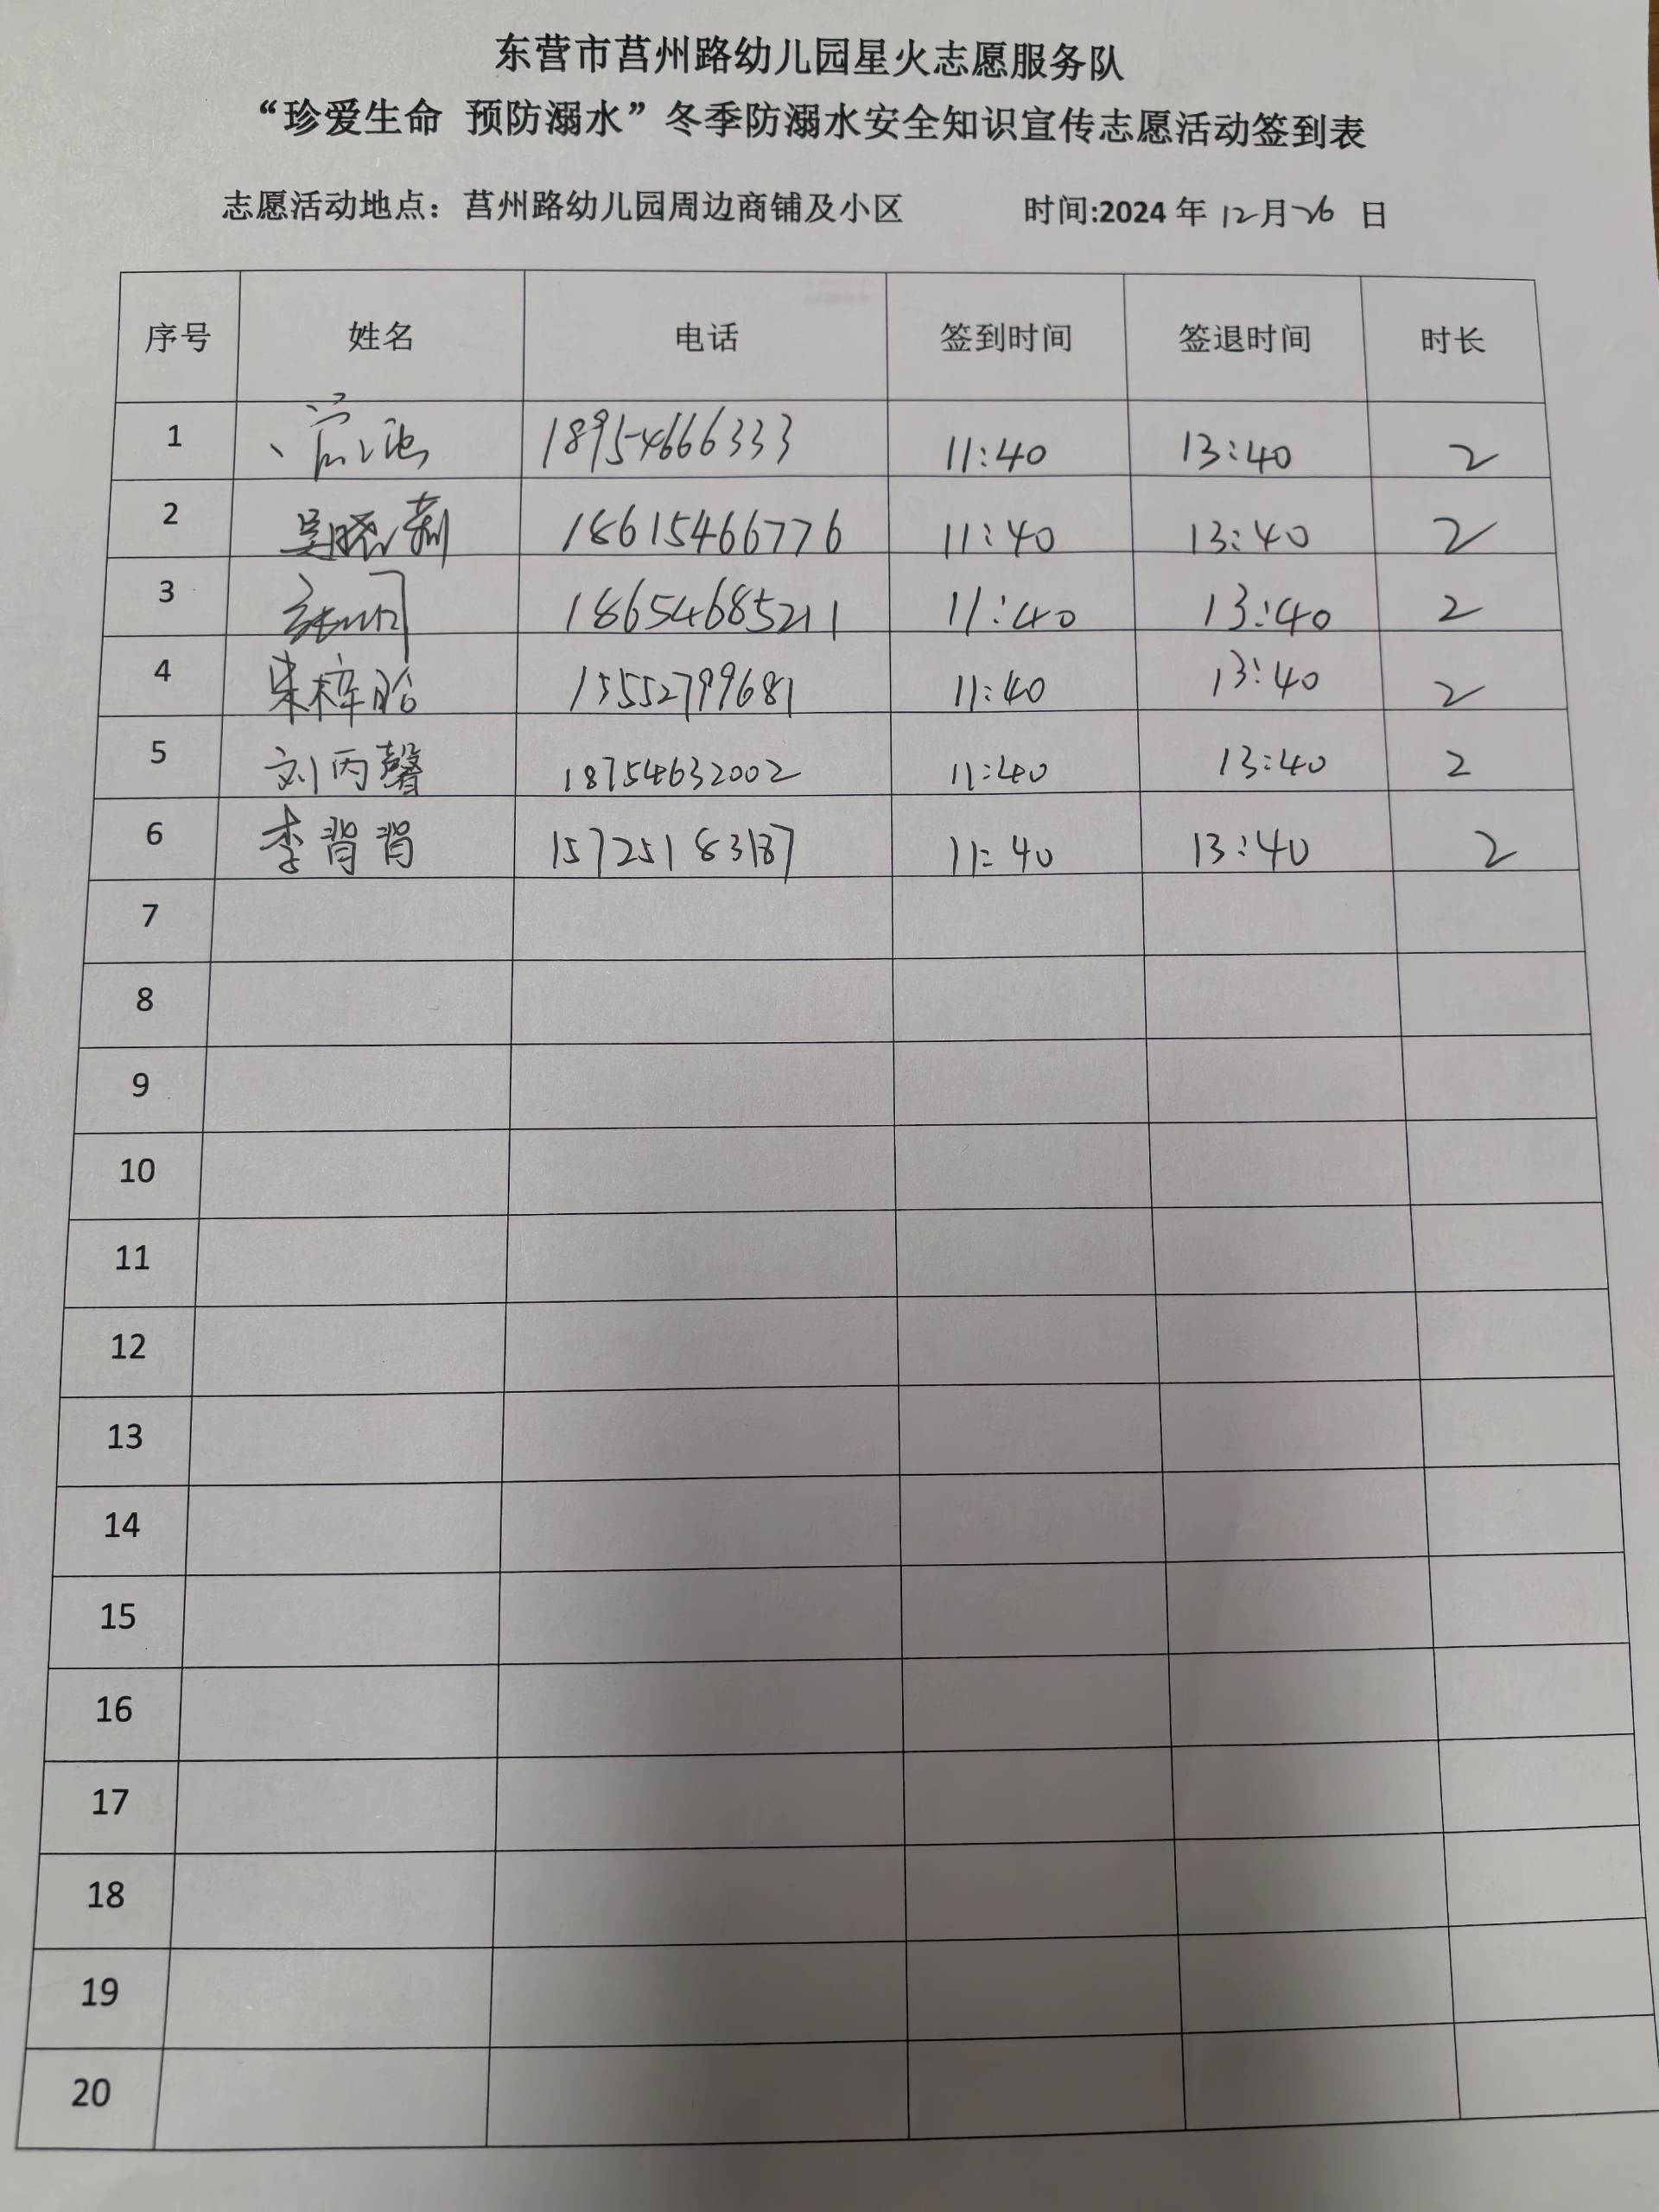 东营市莒州路幼儿园星火志愿服务队
“珍爱生命 预防溺水”冬季防溺水安全知识宣传志愿活动签到表
志愿活动地点：莒州路幼儿园周边商铺及小区 时间:2024 年 12月26 日
序号 姓名 电话 签到时间 签退时间 时长
1 18954666333 11:40 13:40 2
2 吴晓莉 18615466776 11:40 13:40 2
3 18654685211 11:40 13:40 2
4 朱梓晗 15552799681 11:40 13:40 2
5 刘丙馨 18754632002 11:40 13:40 2
6 李肖肖 15725183187 11:40 13:40 2
7
8
9
10
11
12
13
14
15
16
17
18
19
20